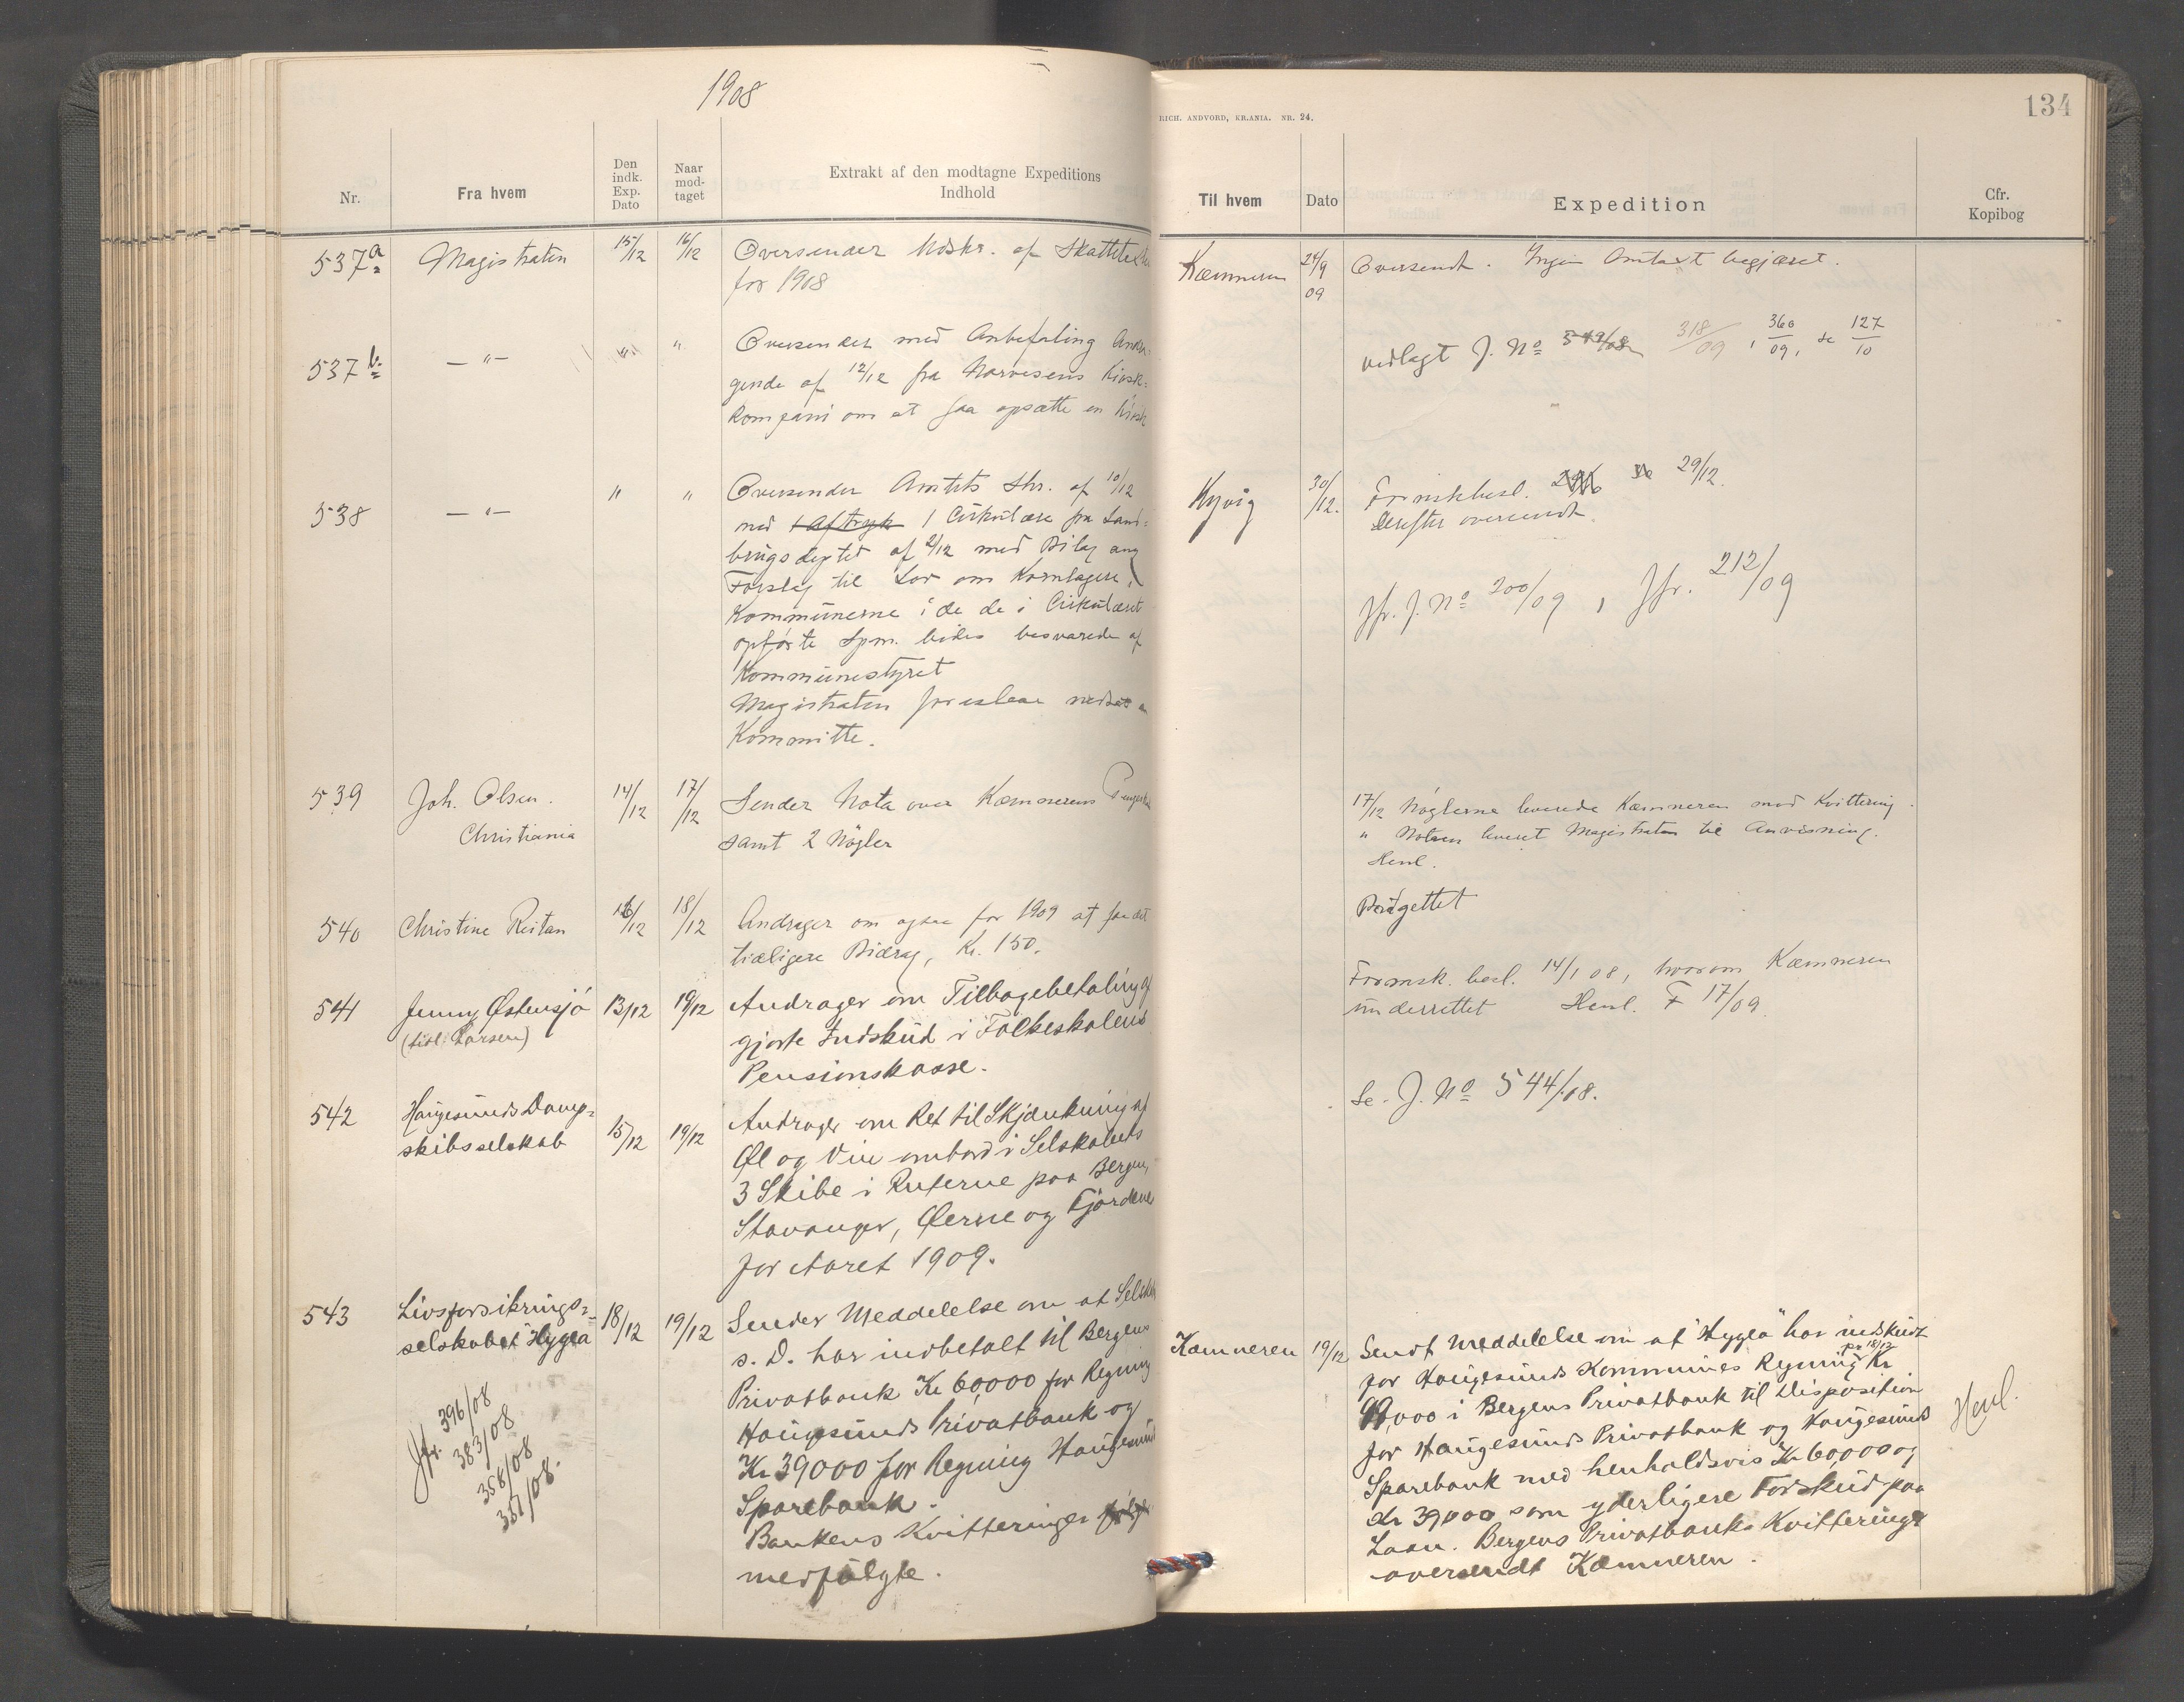 1908
Nr.
Fra hvem
Den indk. Exp. Dato
Naar mod- taget
Extrakt af den modtagne Expeditions Indhold
537 a
Magistraten
15/12
16/12
Oversender Udskr. af
for 1908
537 b
— " —
"
"
Oversender med Anbefaling Andra-
gende af 12/12 fra Narvesens Kiosk-
kompani om at faa opsætte en Kiosk
538
— " —
"
"
Oversender Amtets Skr. af 10/12
med 1 Aftryk 1 Cirkulære fra Land-
brugsdeptet af 2/12 med Bilag ang
Forslag til Lov om Kornlagere,
Kommunerne i de de i Cirkulæret
opførte Spm. bedes besvarede af
Kommunestyret
Magistraten foreslaar nedsat en
Kommitte.
539
Joh. Olsen.
Christiania
14/12
17/12
Sender Nota over Kæmnerens
samt 2 Nøgler
540
Christine Reitan
18/12
Andrager om ogsaa for 1909 at faa det
tidligere Bidrag, Kr. 150.
541
Jenny Østensjø
(tidl. Larsen)
13/12
19/12
Andrager om Tilbagebetaling af
gjorte Indskud i Folkeskolens
Pensionskasse.
542
Haugesunds Damp-
skibsselskab
15/12
19/12
Andrager om Ret til Skjænkning af
Øl og Vin ombord i Selskabets
3 Skibe i Ruterne paa Bergen,
Stavanger, Øerne og Fjordene
for Aaret 1909.
543
Livsforsikrings-
selskabet Hygea
18/12
19/12
Sender Meddelelse om at Selsk.
s. D. har indbetalt til Bergens
Privatbank Kr 60,000 for Regning
Haugesunds Privatbank og
Kr 39000 for Regning Haugesunds
Sparebank.
Bankens Kvitteringer
medfølgte.
Jfr. 396/08
383/08
358/08
351/08.
RICH. ANDVORD, KR.ANIA. NR. 24.
134
Til hvem
Dato
Expedition
Cfr. Kopibog
Kæmneren
24/9 09
Oversendt. Ingen Omtaxt begjæret.
vedlagt J. No 318/09, 360/09, se 127/10
Kyvig
30/12.
Formskbesl. 29/12.
Derefter oversendt
Jfr. J. No 200/09, Jfr. 212/09
17/12 Nøglerne leverede Kæmneren mod Kvittering.
" Notaen leveret Magistraten til Anvisning.
Henl.
Budgettet
Formsk. besl. 14/1 08, hvorom Kæmneren
underrettet Henl. F 17/09
Se. J. No 544/08.
Kæmneren
19/12
Sendt Meddelelse om at "Hygea" har indskudt
for Haugesunds Kommunes Regning pr 18/12 Kr
99,000 i Bergens Privatbank til Disposition
for Haugesunds Privatbank og Haugesunds
Sparebank med henholdsvis Kr 60,000 og
Kr 39000 som yderligere Forskud paa
Laan. Bergens Privatbanks Kvitteringer
oversendt Kæmneren.
Henl.